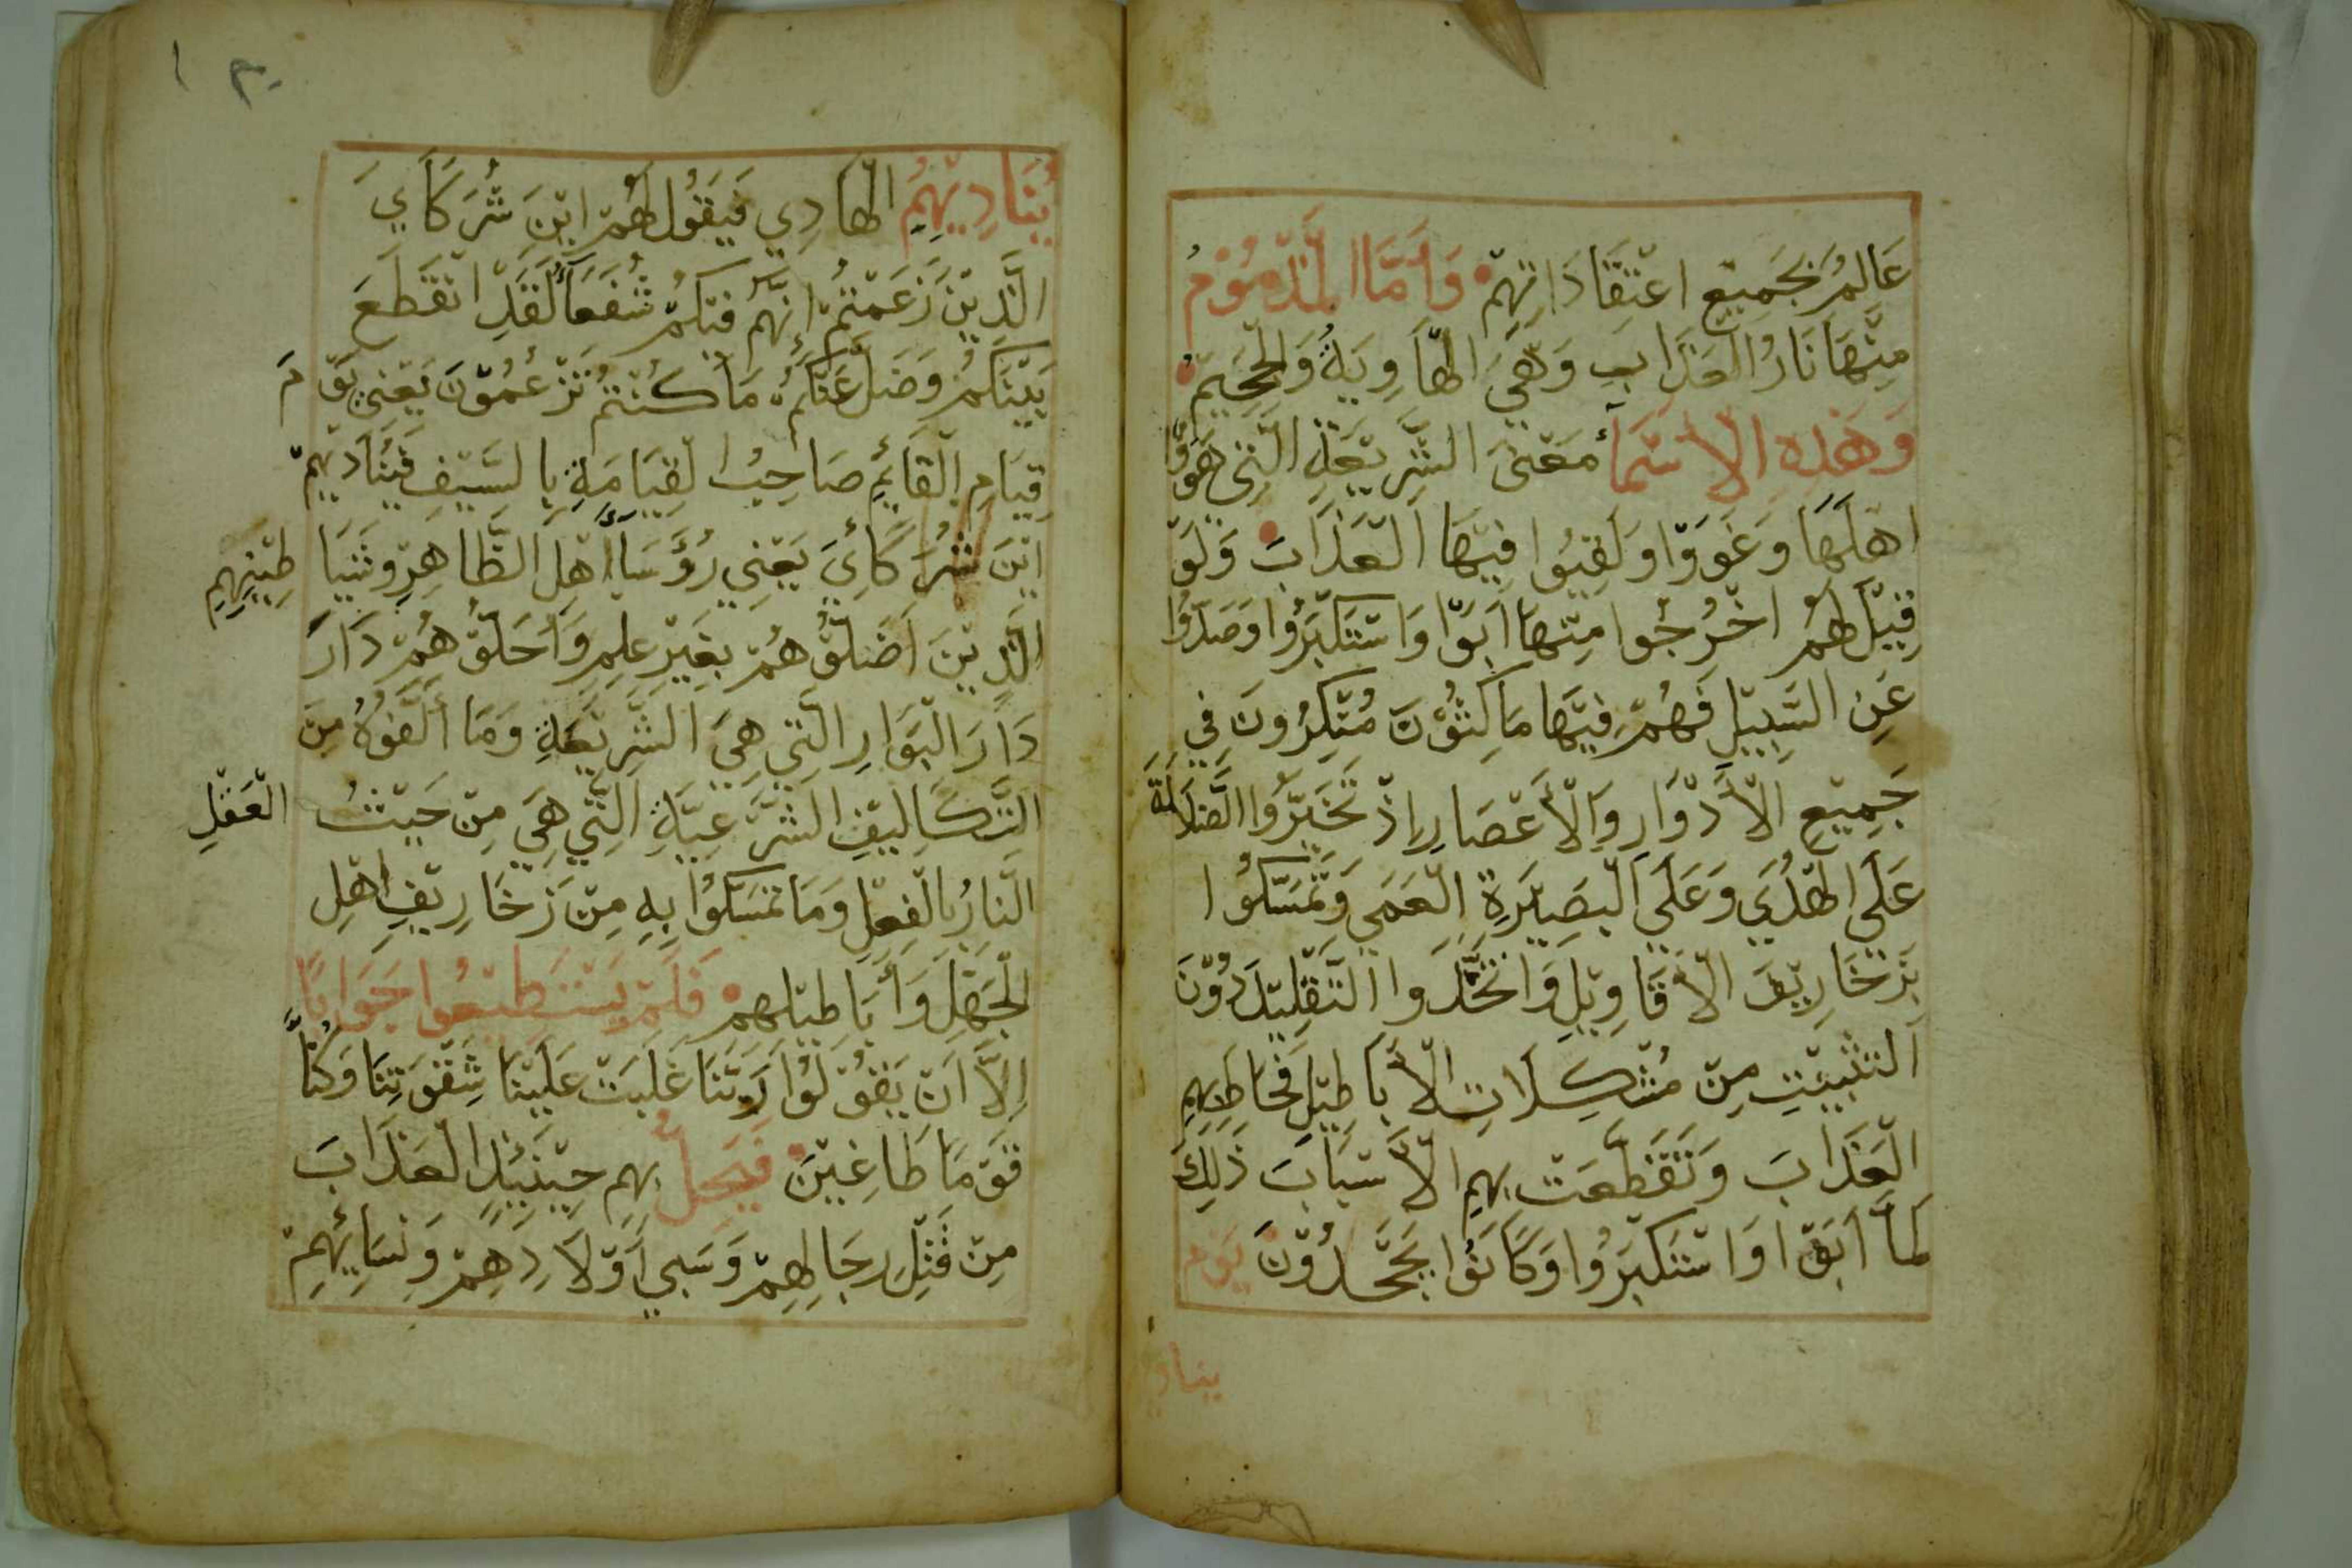 عَالِمُ بِجَمِيْعِ اعْتِقَادَاتِهِمْ وَأَمَّا الْمَذْمُوْمُ
مِنْهَا نَارُ العَذَابِ وَهِيَ الْهَاوِيَةُ وَالْجَحِيْمُ
وَهَذِهِ الْاسْمَاُ مَعْنىَ الشَّرِيْعَةِ الَّتِى هَوَّوْ
اهْلَهَا وَغَوَوْا وَلَقِيُوا فِيْهَا الْعَذَابَ وَلَوْ
قِيْلَ لَهُمُ اخْرُجُوا مِنْهَا ابَوْا وَاسْتَكْبَرُوْا وَصَدُّوْا
عَنِ السَّبِيْلِ فَهُمْ فِيْهَا مَاكِثُوْنَ مُنْكِرُونَ فِي
جَمِيْعِ الْأَدْوَارِ وَالْأَعْصَارِ اذْ تَخَيَّرُوا الضَّلَالَةَ
عَلَى الْهُدَي وَعَلَى الْبَصِيْرَةِ الْعَمَي وَتَمَسَّكُوْا
بِزَخَارِيْفِ الْأَقَاوِيْلِ وَاتَّخَذُوا التَّقْلِيْدَ دُوْنَ
التَثْبِيْتِ مِنْ مُشْكِلَاتِ الْأَبَاطِيْلِ فَحَاطَ بِهِمِ
الْعَذَابَ وَتَقَطَّعَتْ بِهِمِ الْأَسْبَابَ ذَلِكَ
لَمَّا ابَوْا وَاسْتَكْبَرُوا وَكَانُوْا يَجْحَدُوْنَ يَوْمَ
يناد
٢٠ ١
يُنَادِيْهِمُ الْهَادِي فَيَقُوْلُ لَهُمْ ايْنَ شُرَكَاَيَ
الَّذِيْنَ زَعَمْتُمْ انَّهُمْ فِيْكُمْ شُفَعَاُ لَقَدْ اتْقَطَعَ
بَيْنَكُمْ وَضَلَّ عَنْكُمْ مَا كُنْتُمْ تَزْعُمُوْنَ يَعْنِي يَوْمَ
قِيَامِ الْقَائِمِ صَاحِبُ الْقِيَامَةِ بِالسَّيْفِ فَيُنَادِيْهِمْ
ايْنَ شُرَكَائِيَ يَعْنِي رُؤَسَاَ اهْلِ الظَّاهِرِ وشَيَا طِيْنِهِمِ
الَّذِيْنَ اَضَلُّوْهُمْ بِغَيْرِ عِلِمٍ وَأَحَلُّوْهُمْ دَارَ
دَارَ الْبَوَارِ الَّتِي هِيَ الشَّرِيْعَةِ وَمَا أَلَّفُوْهُ مِنَ
التَّكَالِيْفِ الشَّرْعِيَّةِ الَّتِي هِيَ مِنْ حَيْثُ الْعَقْلِ
النَارُ بِالْفِعْلِ وَمَا تَمَسَّكُوْا بِهِ مِنْ زَخَارِيْفِ اهْلِ
الْجَهْلِ وَأَبَاطِيْلِهِمْ فَلَمْ يَسْتَطِيْعُوا جَوَابًا
الَّا انْ يَقُوْلُوْا رَبَّنَا غَلَبَتْ عَلَيْنَا شِقْوَتِنَا وَكُنَّا
قَوْمَا طَاغِيْنَ فَيَحِلُ بِهِم حِيْنَئِذٍ الْعَذَابَ
مِنْ قَتْلِ رِجَالِهِمْ وَسَبِي اَوْلَادِهِمْ وَنِسَائِهِمْ